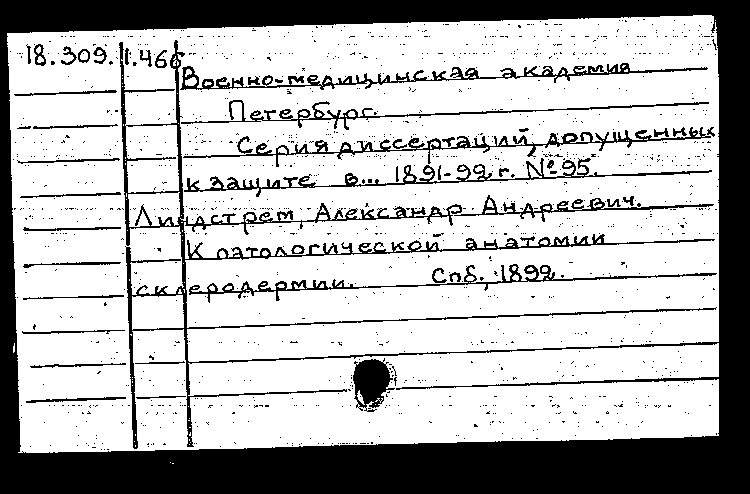 18.309. 1.466
Военно-медицинская академия
Петербург.
Серия диссертаций, допущенных
к защите в... 1891-92 г. № 95.
Линдстрем, Александр Андреевич.
К патологической анатомии
склеродермии. Спб., 1892.